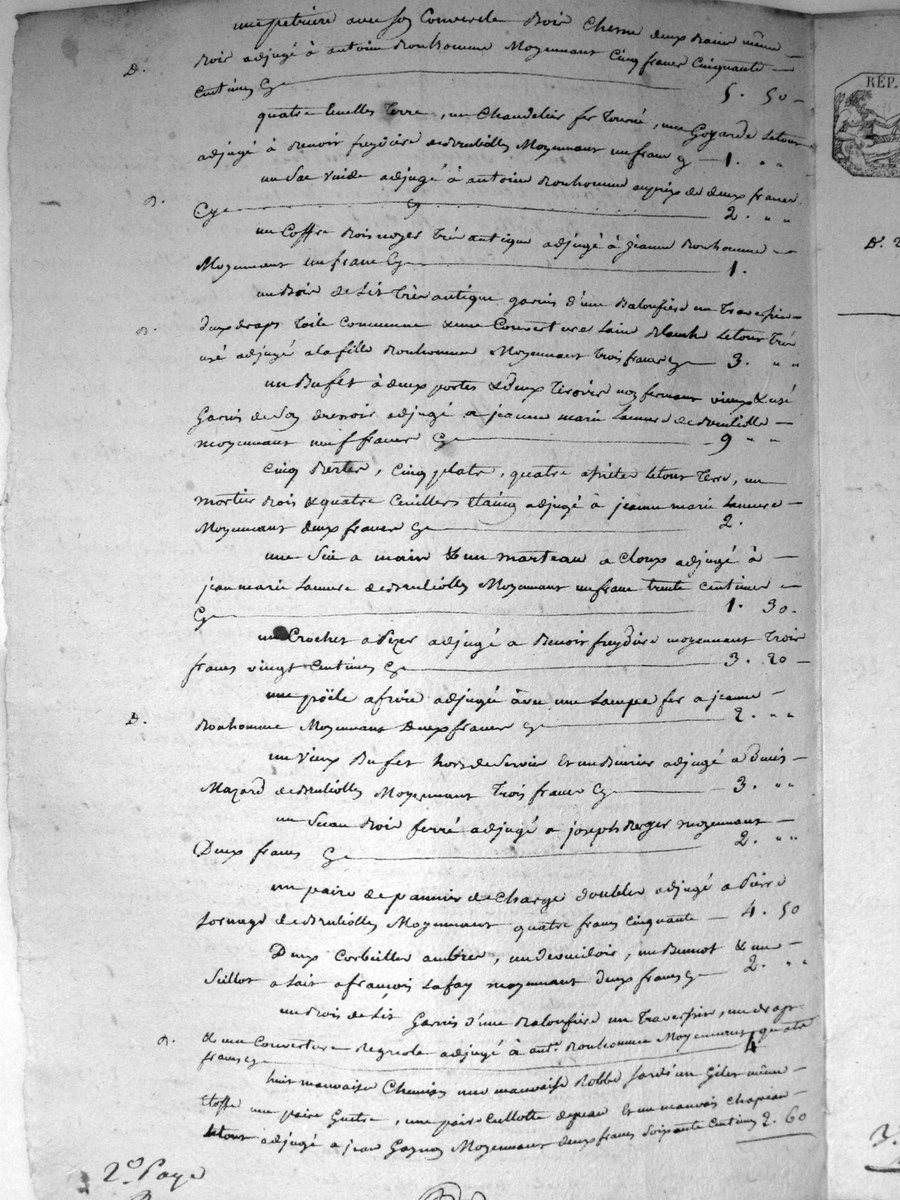 une petriere avec son Couvercle Bois Chesne deux bancs même
D. Bois adjugé à antoine Bonhomme Moyennant Cinq francs Cinquante
Centimes Cy 5. 50
quatre Terre, un Chandelier fer Tourné, une Goyarde Letout
adjugé à Benoit freydiere de Brulliolles Moyennant un franc Cy 1. " "
D. un Sac vuide adjugé à antoine Bonhomme au prix de deux francs
Cy 2. " "
un Coffre Bois noyer Très antique adjugé à jeanne Bonhomme
Moyennant un franc Cy 1.
un Bois de Lit Très antique garnis d'une Baloufiere un Traversin
B. deux draps Toile Commune & une Couverture Laine Blanche Letout Très
usé adjugé a la fille Bonhomme Moyennant Trois francs Cy 3. " "
un Bufet à deux portes & deux Tiroirs noz fermant vieux & usé
Garnis de Son dressoir adjugé a jeanne marie Lamure de Brulliolle
moyennant neuf francs Cy 9 " "
Cinq , Cinq plats, quatre assiètes Letout Terre, un
mortier Bois & quatre Cuillers Etaing adjugé à jeanne marie Lamure
Moyennant deux francs Cy 2.
une Sie a main & un marteau a Cloux adjugé à
jean marie Lamure de Brulliolles Moyennant un franc trente Centimes
Cy 1. 30.
un Crochet a Pezer adjugé a Benoit freydiere moyennant Trois
francs vingt Centimes Cy 3. 20
une poële a frire adjugé avec une Lampe fer a jeanne
D. Bonhomme Moyennant Deux francs Cy 2. " "
un vieux Bufet hors de Service Et un adjugé a
Mazard de Brulliolles Moyennant Trois francs Cy 3. " "
un Seau Bois ferré adjugé a joseph Berger moyennant
Deux francs Cy 2. " "
un paire de pannier de Charge doubles adjugé a Pierre
de Brulliolles Moyennant quatre francs Cinquante 4. 50
Deux Corbeilles , un , un Bennot & une
Seillot a Lait a francois Lafay moyennant deux francs Cy 2. " "
un Bois de Lit Garnis d'une Baloufiere un Traversin, un drap
D. & une Couverture adjugé à ant.e Bonhomme Moyennant quatre
francs Cy 4
huit mauvaise Chemises une mauvaise Robbe un Gilet même
Etoffe une paire Guetre, une paire Cullotte de peau Et un mauvais Chapeau
Letout adjugé a jean Moyennant deux francs Soixante Centimes 2. 60
2.e Page
RÉP.